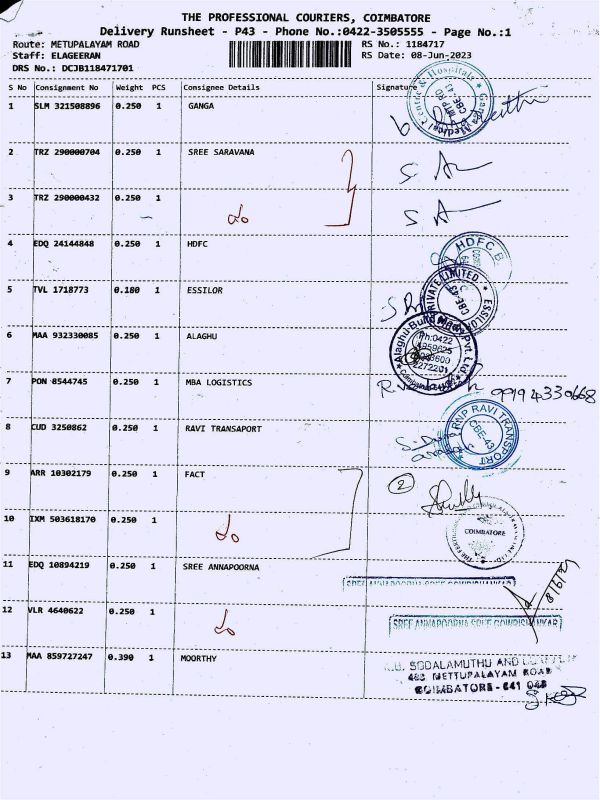 THE PROFESSIONAL COURIERS, COIMBATORE
Delivery Runsheet - P43 - Phone No.:0422-3505555 - Page No.:1
Route: METUPALAYAM ROAD RS No.: 1184717
Staff: ELAGEERAN RS Date: 08-Jun-2023
DRS No.: DCJB118471701
S No Consignment No Weight PCS Consignee Details Signature
1 SLM 321508896 0.250 1 GANGA
2 TRZ 290000704 0.250 1 SREE SARAVANA
3 TRZ 290000432 0.250 1
4 EDQ 24144848 0.250 1 HDFC
HDFC B
5 TVL 1718773 0.180 1 ESSILOR
PRIVATE LIMITED
ESSILOR
CBE-43
6 MAA 932330085 0.250 1 ALAGHU
Ph:0422
2272201
7 PON 8544745 0.250 1 MBA LOGISTICS
8 CUD 3250862 0.250 1 RAVI TRANSAPORT
RNP RAVI TRANSPORT
CBE-43
9 ARR 10302179 0.250 1 FACT
2
10 IXM 503618170 0.250 1
COIMBATORE
11 EDQ 10894219 0.250 1 SREE ANNAPOORNA
SREE ANNAPOORNA SREE GOWRISHANKAR
12 VLR 4640622 0.250 1
SREE ANNAPOORNA SREE GOWRISHANKAR
13 MAA 859727247 0.390 1 MOORTHY
SODALAMUTHU AND
METTUPALAYAM ROAD
COIMBATORE - 641 043